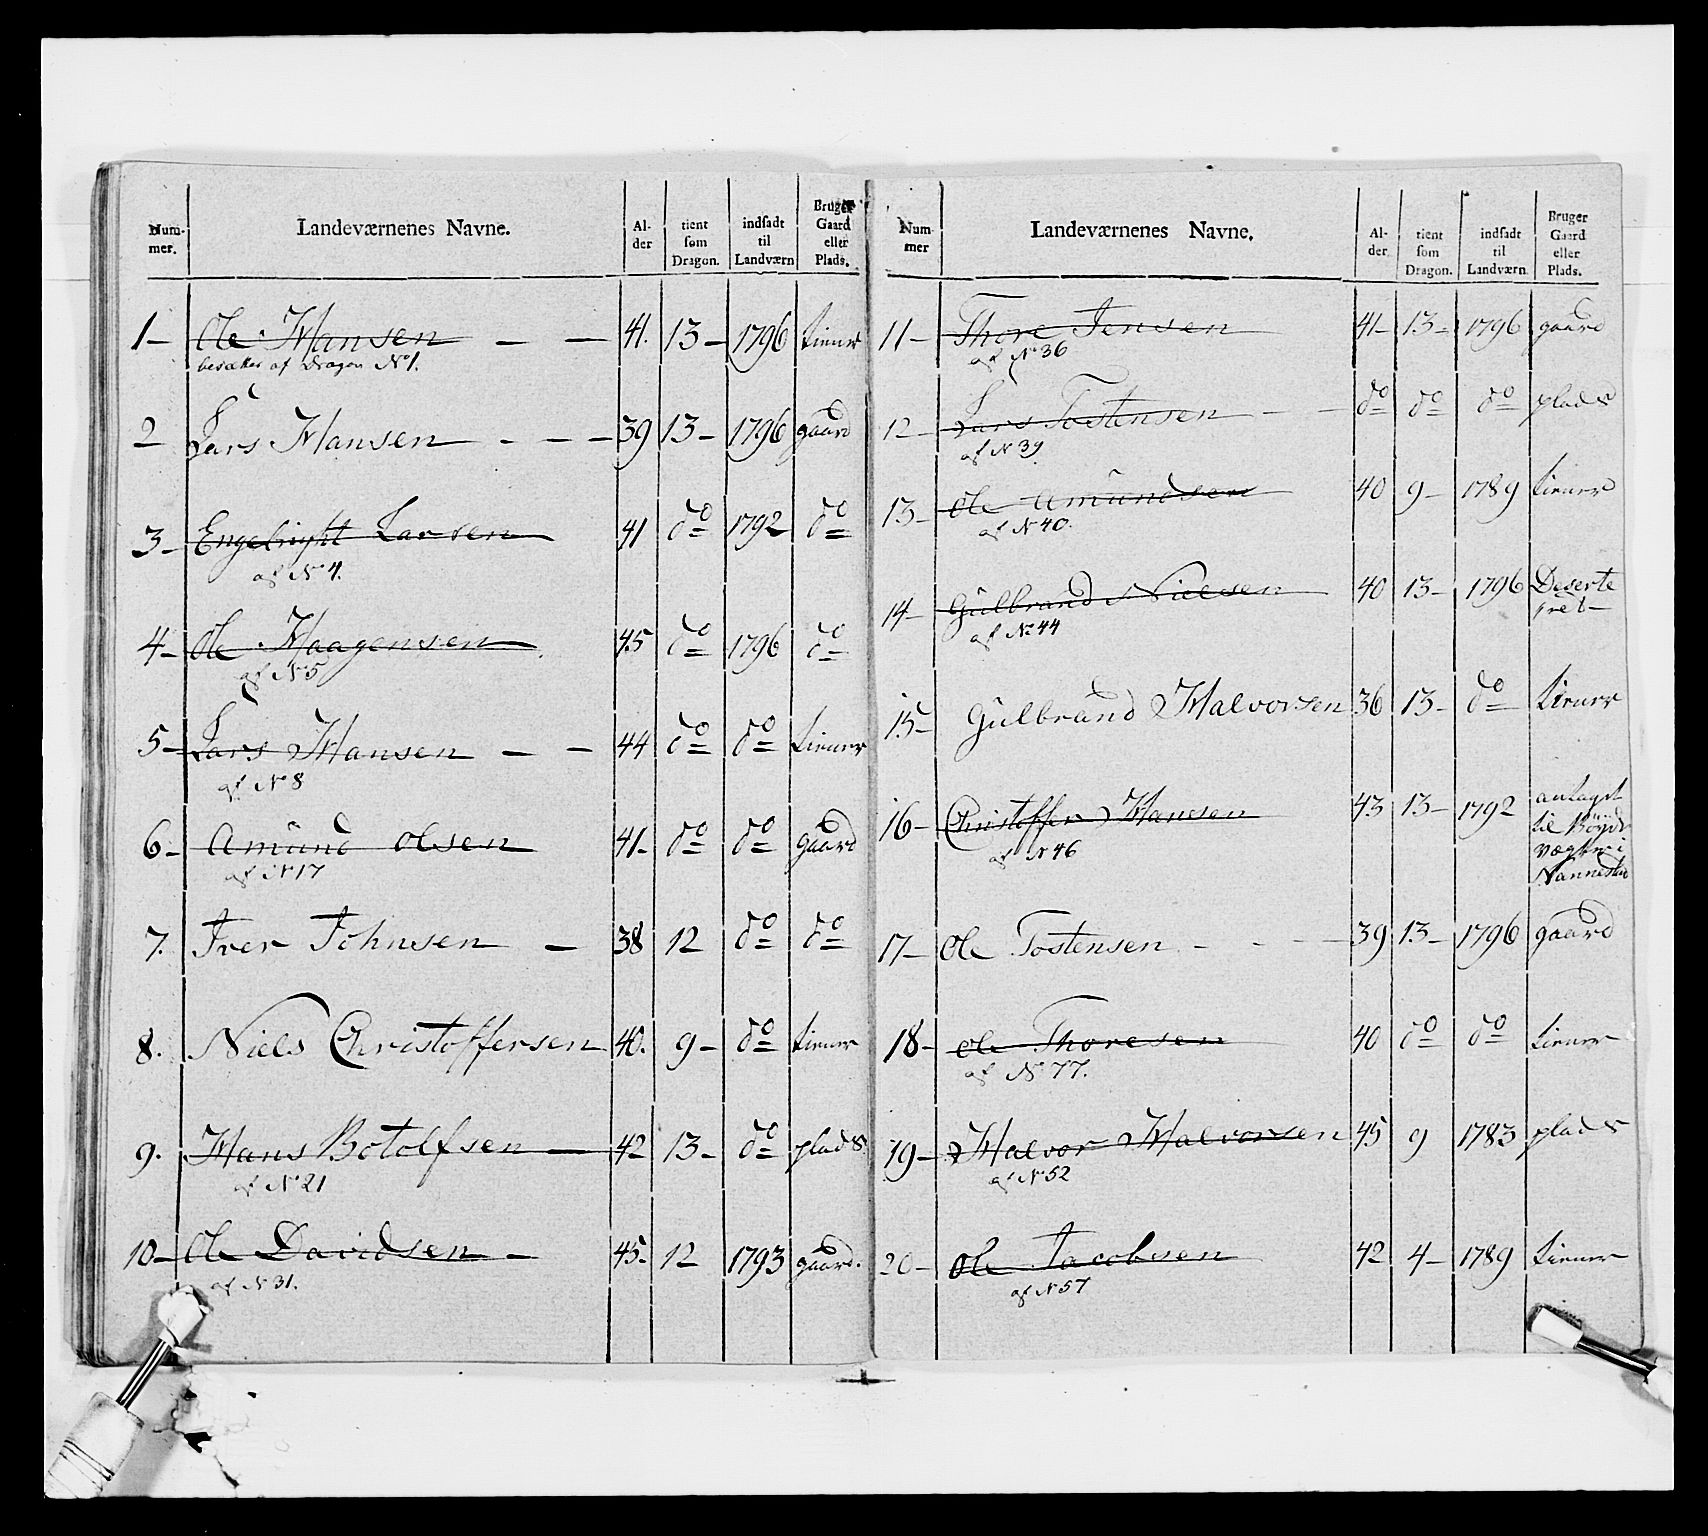 Num- mer. Landeværnenes Navne. Al- der tient som Dragon. indsadt til Landværn Bruger Gaard eller Plads.
1- Ole Hansen - - 41. 13- 1796 tiener
besætter af Dragon No 1.
2 Lars Hansen - - - 39 13- 1796 gaard
3- Engebright Larsen 41 do 1792 do
af No 4.
4- Ole Haagensen 45 do 1796 do
af No 5
5- Lars Hansen - - 44 do do tiener
af No 8
6- Amund Olsen 41- do do gaard
af No 17
7. Iver Johnsen - 38 12 do do
8. Niels Christoffersen 40. 9- do tiener
9. Hans Botolfsen - 42 13- do plads
af No 21
10- Ole Davidsen - 45. 12 1793 gaard.
af No 31.
Num- mer Landeværnenes Navne. Al- der tient som Dragon. indsadt til Landværn Bruger Gaard eller Plads.
11- Thore Jensen 41- 13- 1796 gaard
af No 36
12- Lars Tostensen - - do do do plads
af No 39
13- Ole Amundsen 40 9- 1789 tiener
af No 40.
14- Gulbrand Nielsen 40 13- 1796 Deserte
af No 44 ret-
15- Gulbrand Halvorsen 36 13- do tiener
16- Christoffer Hansen 43 13- 1792 antaget
til Bøyde
af No 46 vægter i
Nannestad
17- Ole Tostensen - - - 39 13- 1796 gaard
18- Ole Thoresen 40 do do tiener
af No 77.
19- Halvor Halvorsen 45 9 1783 plads
af No 52
20- Ole Jacobsen 42 4- 1789 tiener
af No 57